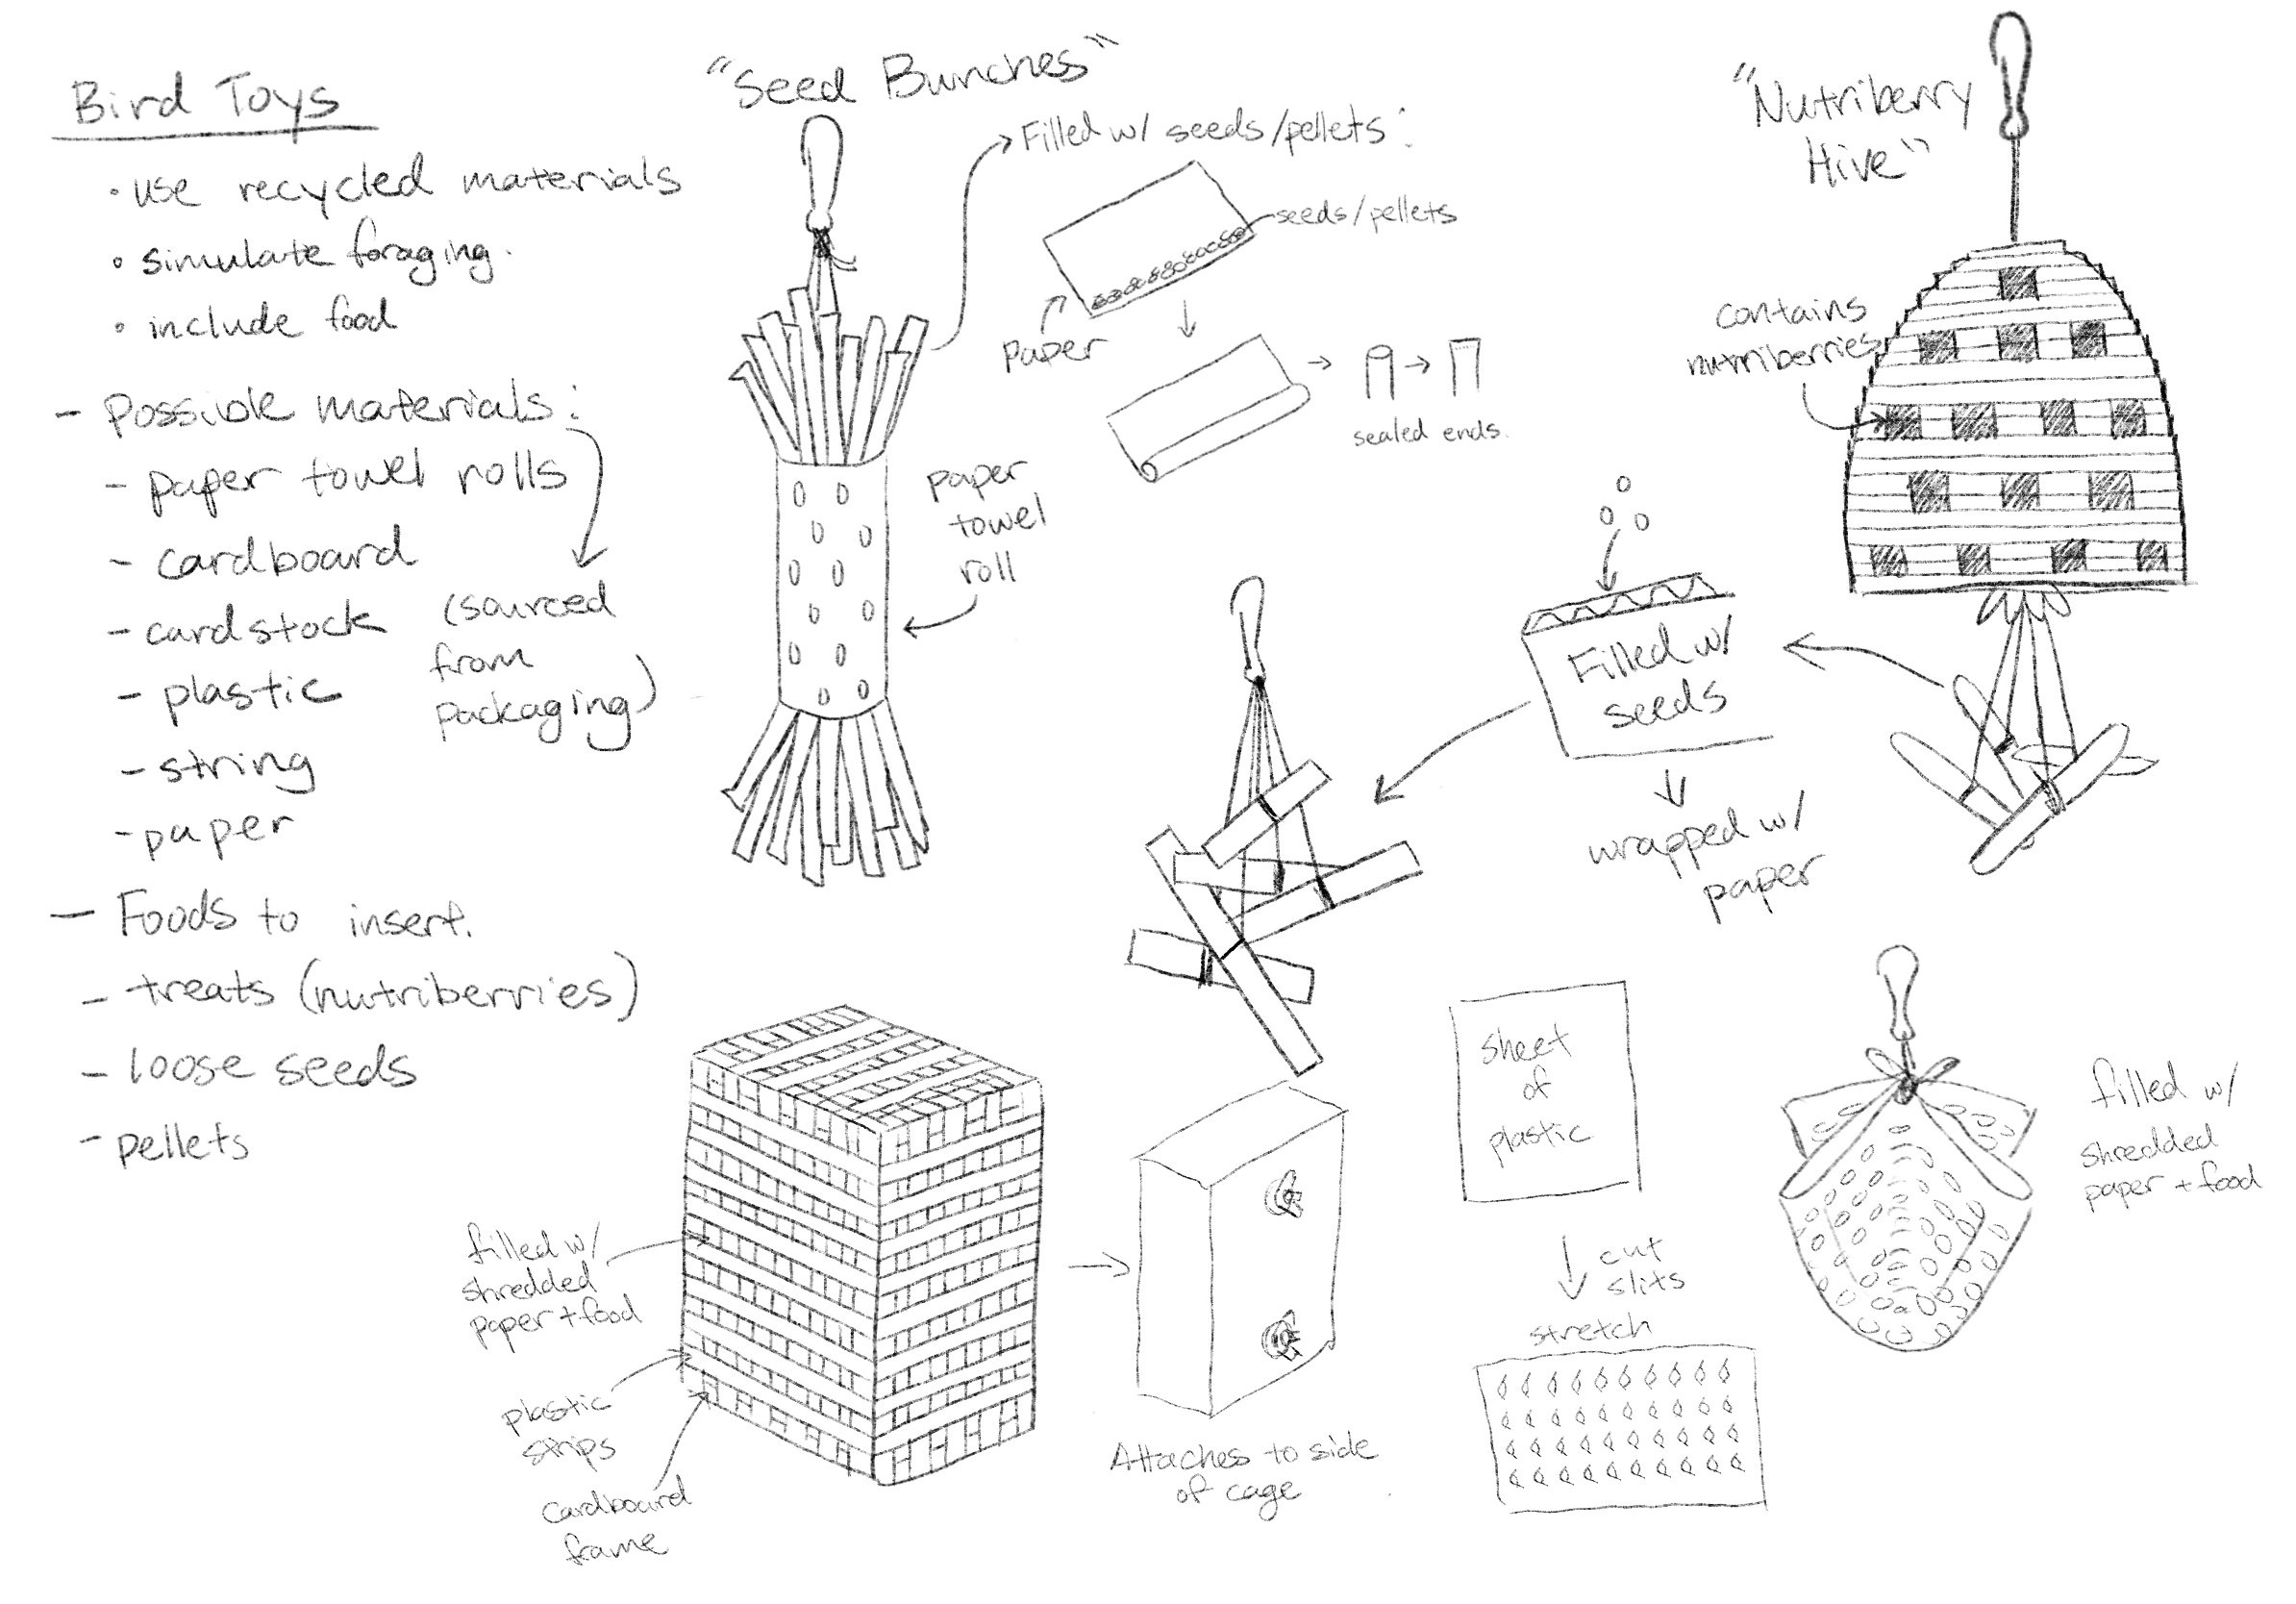 Bird Toys
• use recycled materials
• simulate foraging.
• include food
- Possible materials:
- paper towel rolls
- cardboard
- cardstock
- plastic
- string
- paper
(sourced
from
packaging)
- Foods to insert.
- treats (nutriberries)
- loose seeds
- pellets
"Seed Bunches"
Filled w/ seeds/pellets:
seeds/pellets
paper
sealed ends.
paper
towel
roll
"Nutriberry
Hive"
contains
nutriberries
Filled w/
seeds
wrapped w/
paper
filled w/
shredded
paper + food
plastic
strips
cardboard
frame
Attaches to side
of cage
sheet
of
plastic
cut
slits
stretch
filled w/
shredded
paper + food